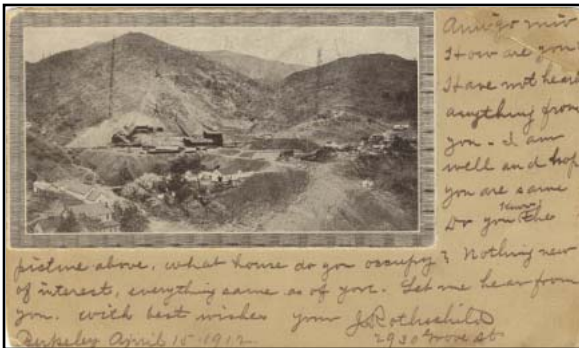 Amigo mio
How are you
Have not heard
anything from
you - I am
well and hope
you are same
Know
Do you the
picture above, what house do you occupy? Nothing new
of interest, everything same as of yore. Let me hear from
you. with best wishes your J. Rothschild
Berkeley April 15-1912 2930 Grove St